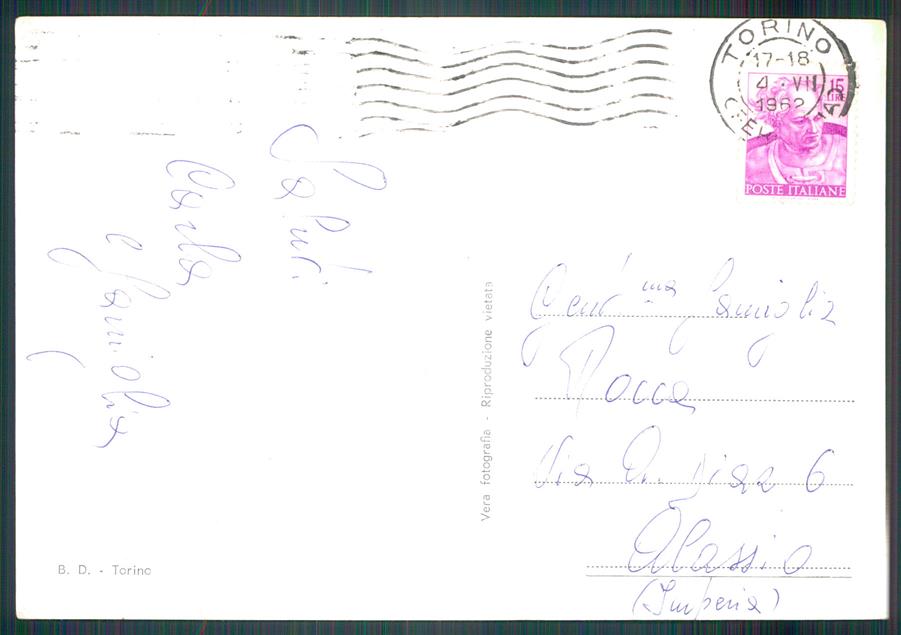 TORINO
17-18
4 · VII
1962
15
LIRE
POSTE ITALIANE
Saluti
Carla
e famiglia
Vera fotografia - Riproduzione vietata
Gent.ma famiglia
Rocca
Via A. Diaz 6
Alassio
(Imperia)
B. D. - Torino